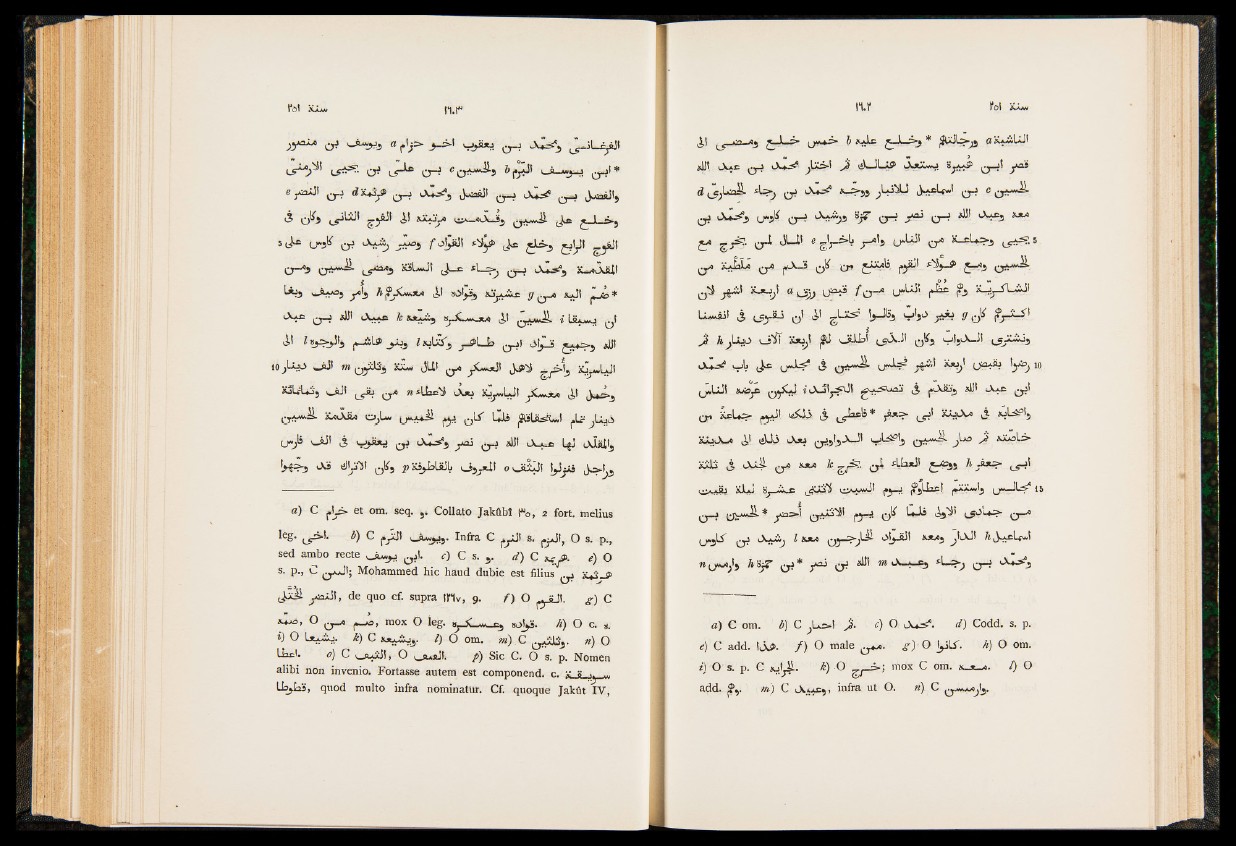 سنة ٢٥١ ١٦٠٢
الناشبة a ورجّالتهم *وخلع عليه b خمس خلع ومضى الى
قصر ابن هبيرة ليستعدّ هنالك ثم اختار محمّد بن عبد الله
الحسين c بن اسماعيل للانبار ووجّه محمّد بن رجاء الحضارىّ d
معه وعبد الله بن نصر بن حمزة ورشيد بن كاوس ومحمّد بن
5 يحيى وجماعة من الناس وامر باخراج e المال لمن يخرج مع
الحسين ومع هؤلاء القوم فامتنع من كان قدم من ملطية من
الشاكريّة وهم عظم الناس من f قبض رزق a اربعة اشهر لانّ
اكثرهم كان g بغير دوابّ وقالوا نحتاج الى ان نقوى فى انفسنا
ونشترى الدوابّ وكان الذى اطلق لهم اربعة آلاف دينار h ثم
10 رضوا بقبض اربعة اشهر فجلس الحسين فى مجلس على باب محمّد
ابن عبد الله وتقدّم فى تصحيح الجرائد i ليكون عرضه الناس
واصحابه فى مدينة ابى جعفر *فاعطى فى ذلك اليوم جماعة من
خاصّته ثم صار الحسين واصحاب الدواوين بعد ذلك الى مدينة
ابى جعفر h ووضع العطاء لمن يخرج k معه من الجند فى ثلثة
15 مجالس واستتمّ اعطاؤهم يوم السبت لاثنتى عشرة ليلة بقيت
من جمادى الاولى فلمّا كان يوم الاثنين احضر *الحسين بن
اسماعيل h الدار ومعه القوّاد الخارجون معه l رشيد بن كاوس
ومحمّد بن رجاء وعبيد m الله بن نصر *بن حمزة h وارمس n
a) C om. b) C ثم اختار. c) O محمد. d) Codd. s. p.
e) C add. هذا. f) O male ممن. g) O كانوا. h) O om.
i) O s. p. C الجرايد. k) O خرج; mox C om. معه. l) O
add. وهم. m) C وعبيد, infra ut O. n) C وارمسن.
سنة ٢٥١ ١٦٠٣
الفرغانىّ ومحمّد بن يعقوب اخو حزام a ويوسف بن منصور
*ابن يوسف البرم b والحسين c بن علىّ بن يحيى الارمنىّ
والفضل بن محمّد بن الفضل ومحمّد بن هرثمة d بن النصر e
وخلع على الحسين وقدّمت مرتبته الى الفوج الثانى وكان فى
5 الفوج الرابع وخلع على هؤلاء القوّاد f وصيّر رشيد بن كاوس على
المقدّمة ومحمّد بن رجاء على الساقة ومضى الحسين ومن
*ضمّ اليه من g عشيرته وقوّاده الى معسكرهم h وأمر وصيف وبغا
ان يسبقا i الحسين الى معسكره وشيّعه k عبيد الله بن عبد
الله وجميع قوّاد ابن طاهر وكتّابه l وبنو هاشم والوجوه l الى
10 الياسريّة وأخرج لاهل العسكر من المال ستّة وثلثون m الف دينار
وحمل الى معسكر الياسريّة بعد لاعطاء n من بقى الف وثمانمائة
دينار تمام استحقاقهم فلمّا كان يوم الخميس سارت مقدّمة الحسين
والمقلّد لها عبد الله بن نصر ومحمّد بن يعقوب فى الف فارس
وراجل فنزلوا البثق o المعروف بالقاطوفة p وكان الاتراك قد وجّهوا
a) C حزام et om. seq. و. Collato Jakûbî ٣٥, 2 fort. melius
leg. اخى. b) C ويوسف البزم. Infra C البرم s. البزم, O s. p.,
sed ambo recte ابن يوسف. c) C s. و. d) C هزيمه. e) O
s. p., C النسر; Mohammed hic haud dubie est filius هرثمة بن
النصر الختّلى, de quo cf. supra ١٣٩٧, 9. f) O القوم. g) C
ضمنه, O ضم من, mox O leg. قواده وعسكره. h) O c. ه.
i) O يشيعا. k) C ويشيعه. l) O om. m) C وثلثين. n) O
اعطا. o) C الثبف, O البثق. p) Sic C. O s. p. Nomen
alibi non invenio. Fortasse autem est componend. c. سويقة
قطوطا, quod multo infra nominatur. Cf. quoque Jakût IV,